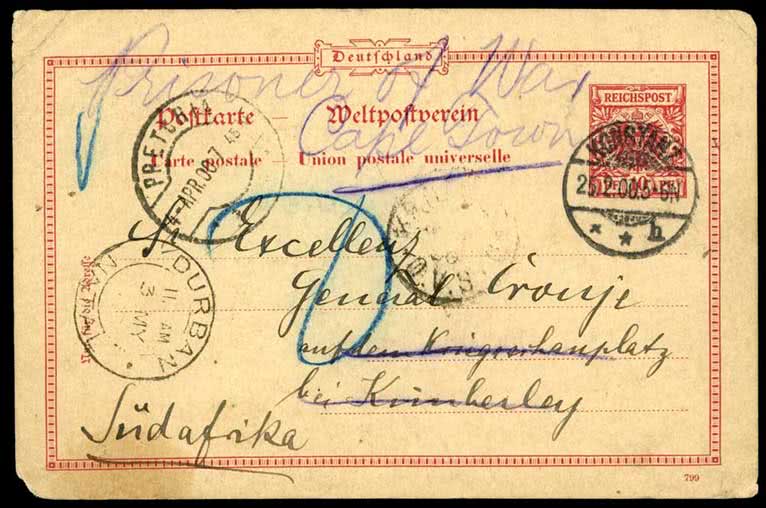 Deutschland
Prisoner of War
Cape Town
REICHSPOST
Postkarte — Weltpostverein
Carte postale — Union postale universelle
PRETORIA
4-APR.00.7 45
KONSTANZ
25.2.00.5-6N
* * h
O.V.S.
Sr Excellenz
General Cronje
auf dem Kriegsschauplatz
bei Kimberley
Südafrika
DURBAN
11 AM
3 MY
799